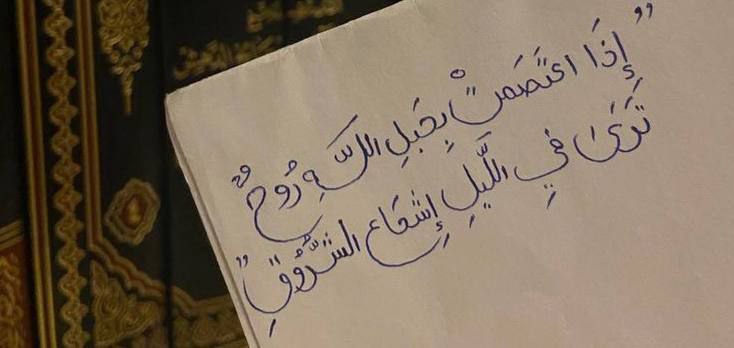 " إِذَا اعتَصَمتْ بِحَبلِ اللَّهِ رُوحٌ
تَرَىٰ فِي اللَّيلِ إِشعَاع الشُّرُوقِ "